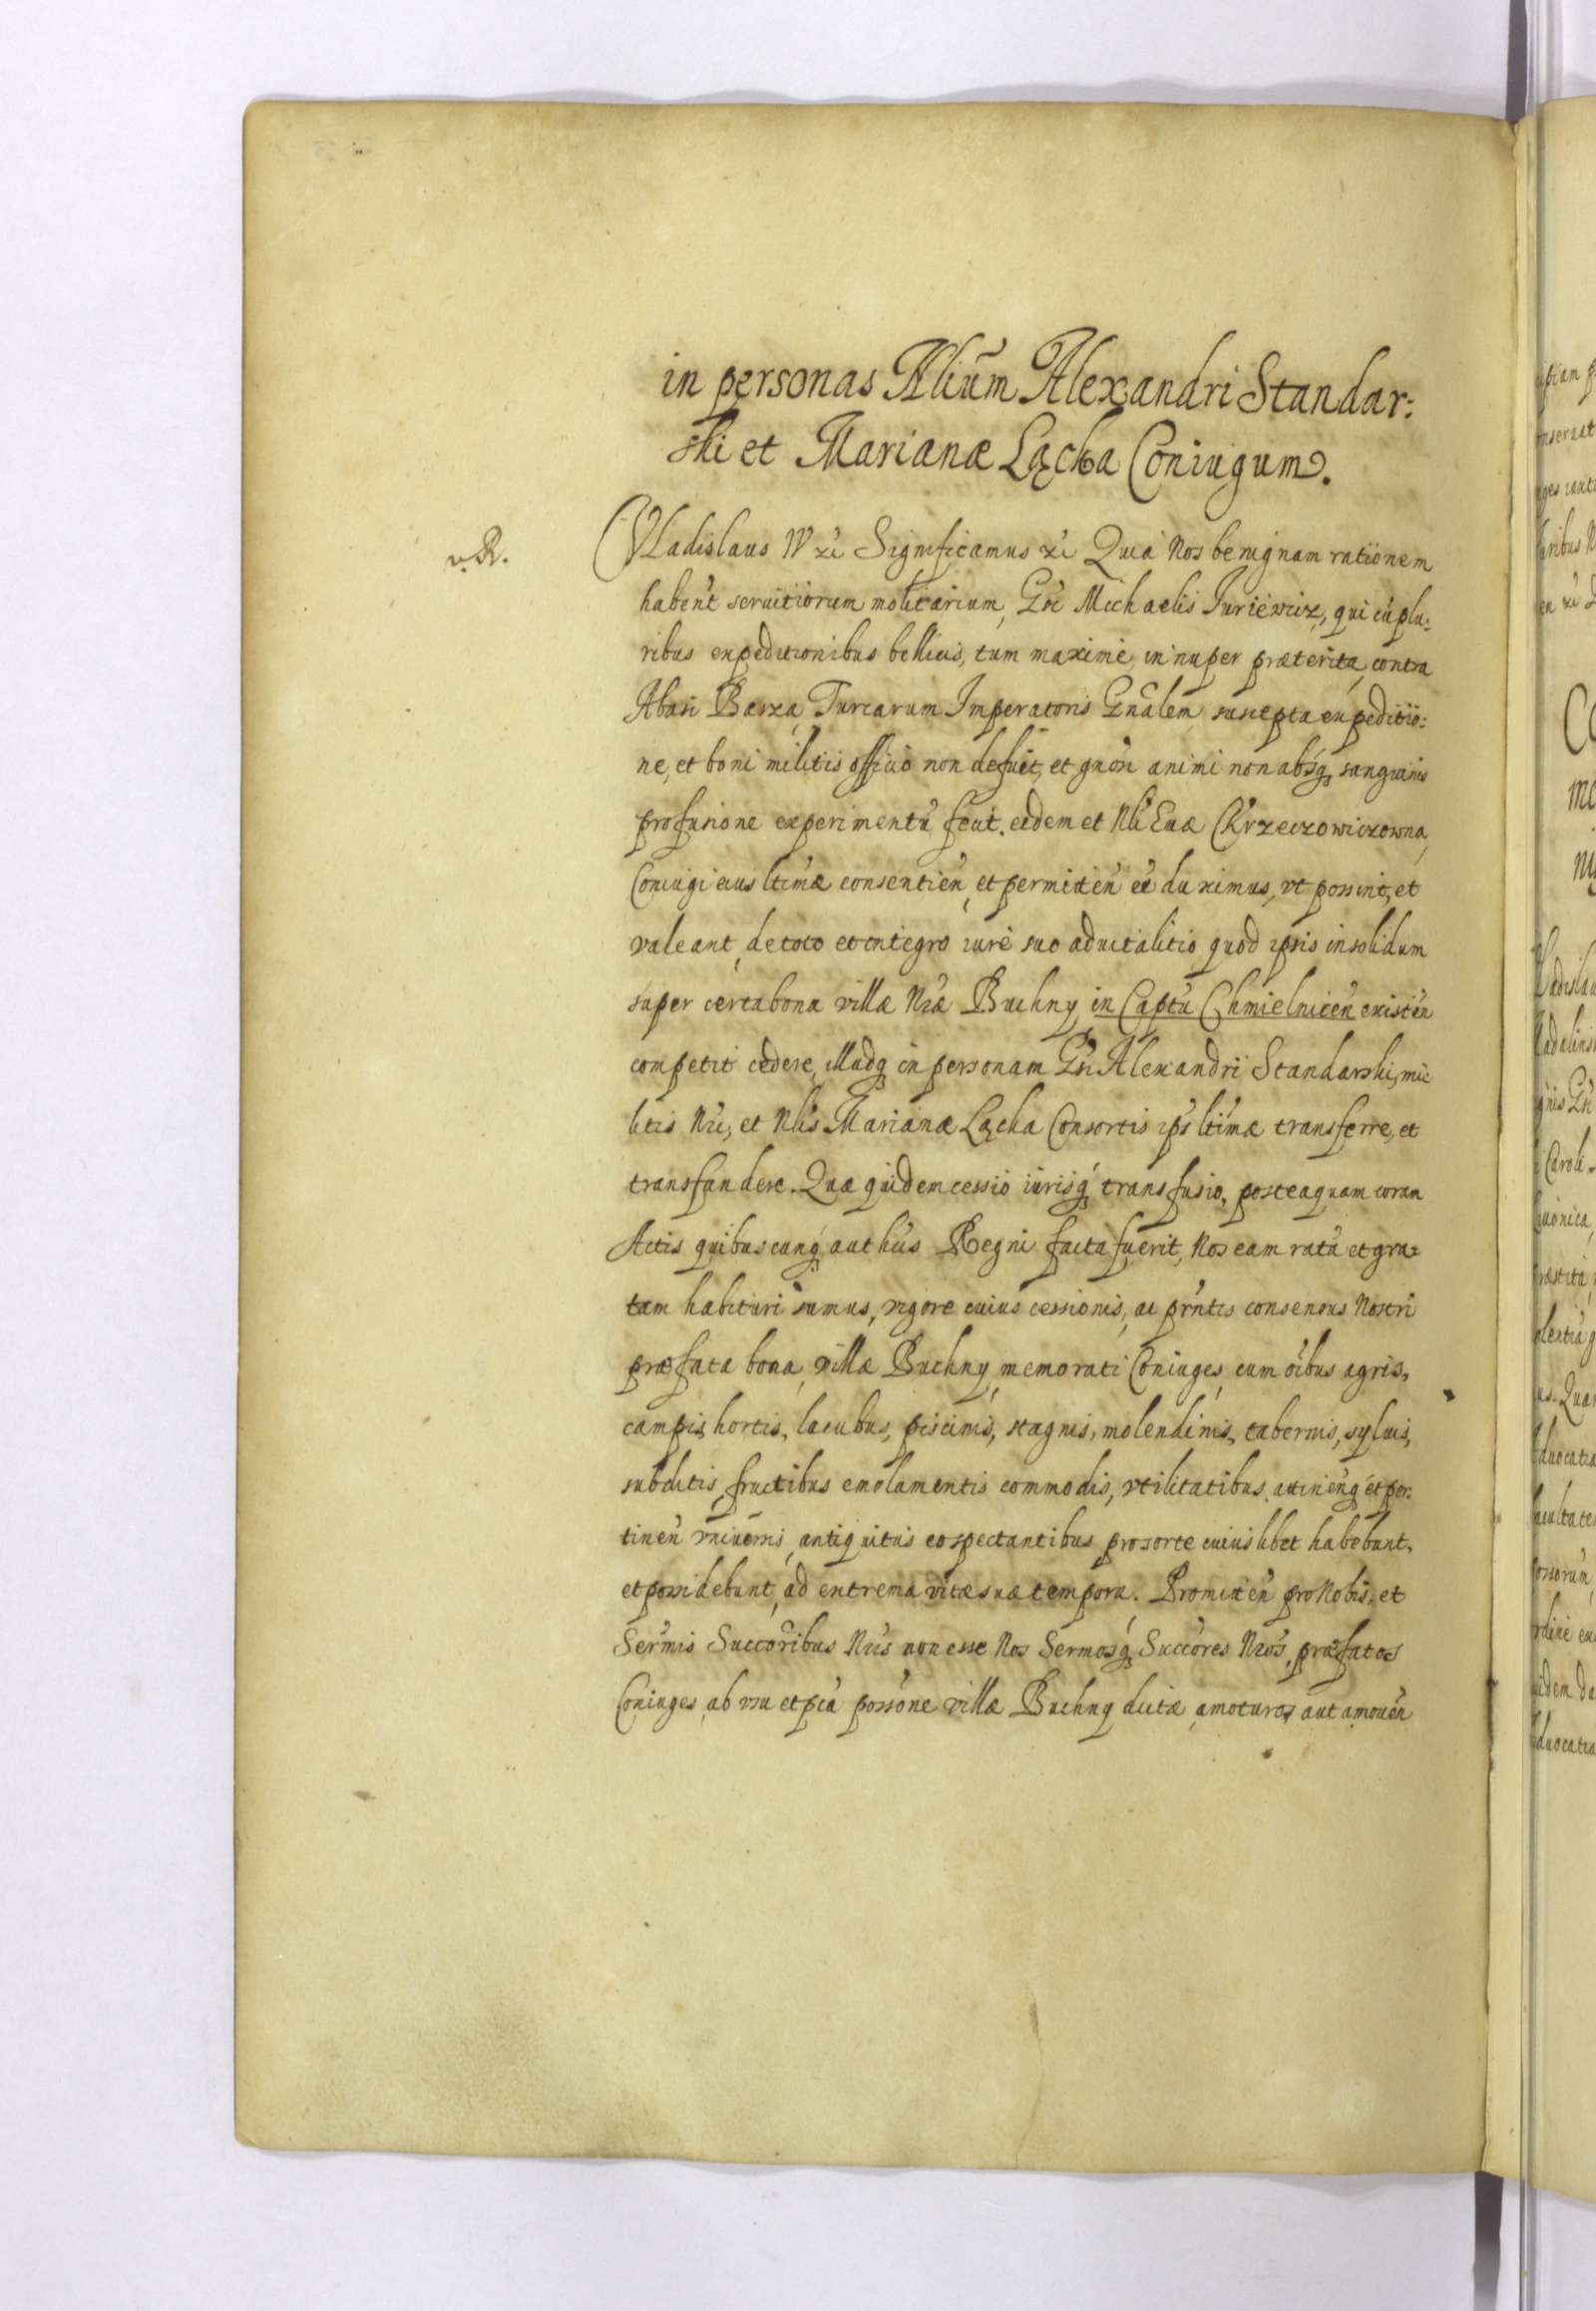 in personas Nlium Alexandri Standar:
ski et Marianæ Łącka Coniugum.
v. R.
Vladislaus IV &c Significamus &c Quia Nos benignam rationem
haben't seruitiorum militarium, Gsi Michaelis Iuriewicz, qui cu' plu:
ribus expeditionibus bellicis, tum maxime, in nuper præterita, contra
Abasi Baszą Turcarum Imperatoris Gnalem suscepta expeditio:
ne, et boni militis officio non defuit, et gnosi animi non absq sanguinis
profusione experimentu' fecit. eidem et Nli Euæ Krzeczowiczowna
Coniugi eius ltimæ consentien' et permitten' ee' duximus, vt possint, et
valeant, de toto et integro iure suo aduitalitio quod ipsis insolidum
super certa bona villæ Nræ Buchny in Captu Chmielnicen' existen'
competit cedere, illudq in personam Gsi Alexandri Standarski, mi
litis Nri, et Nlis Marianæ Łącka Consortis ips' ltimæ transferre, et
transfundere. Quæ quidem cessio iurisq' transfusio, posteaquam coram
Actis quibuscunq' authcis Regni facta fuerit, Nos eam ratu' et gra:
tam habituri sumus, vigore cuius cessionis, ac prntis consensus Nostri
præfata bona villæ Buchny memorati Coniuges, cum oibus agris,
campis, hortis, lacubus, piscinis, stagnis, molendinis, tabernis, syluis,
subditis, fructibus emolumentis commodis, vtilitatibus, attinenq' et per:
tinen' vniuersis, antiquitus eo spectantibus pro sorte cuiuslibet habebunt,
et possidebunt, ad extrema vitæ suæ tempora. Promitten' pro Nobis, et
Sermis Succoribus Nris non esse Nos Sermosq' Succores Nros, præfatos
Coniuges, ab vsu et pca possone villæ Buchny dictæ, amoturos aut amouen'